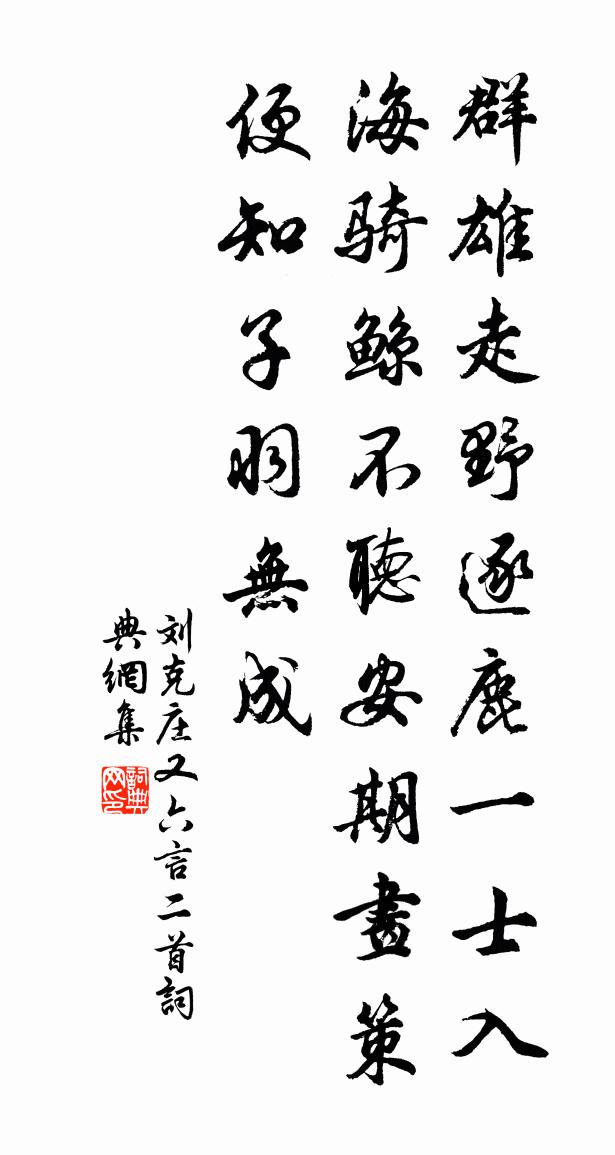 群雄走野逐鹿一士入
海騎鯨不聽安期畫策
便知子羽無成
刘克庄又六言二首詞
典網集
詞典
网印